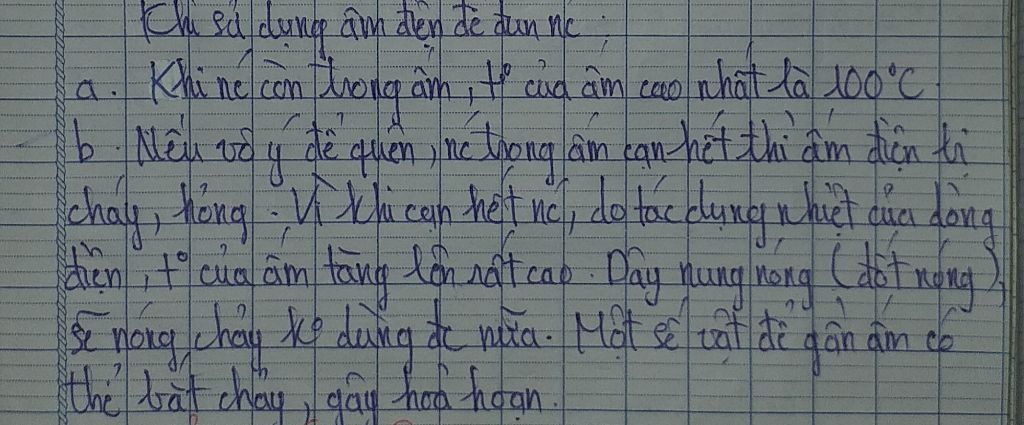 Khi sử dụng ấm điện để đun nc :
a. Khi nc còn trong ấm, t° của ấm cao nhất là 100°C
b. Nếu vô ý để quên, nc trong ấm cạn hết thì ấm điện bị
cháy, hỏng. Vì khi cạn hết nc, do tác dụng nhiệt của dòng
điện, t° của ấm tăng lên rất cao. Dây nung nóng (đốt nóng)
sẽ nóng chảy ko dùng đc nữa. Một số vật để gần ấm có
thể bắt cháy, gây hoả hoạn.